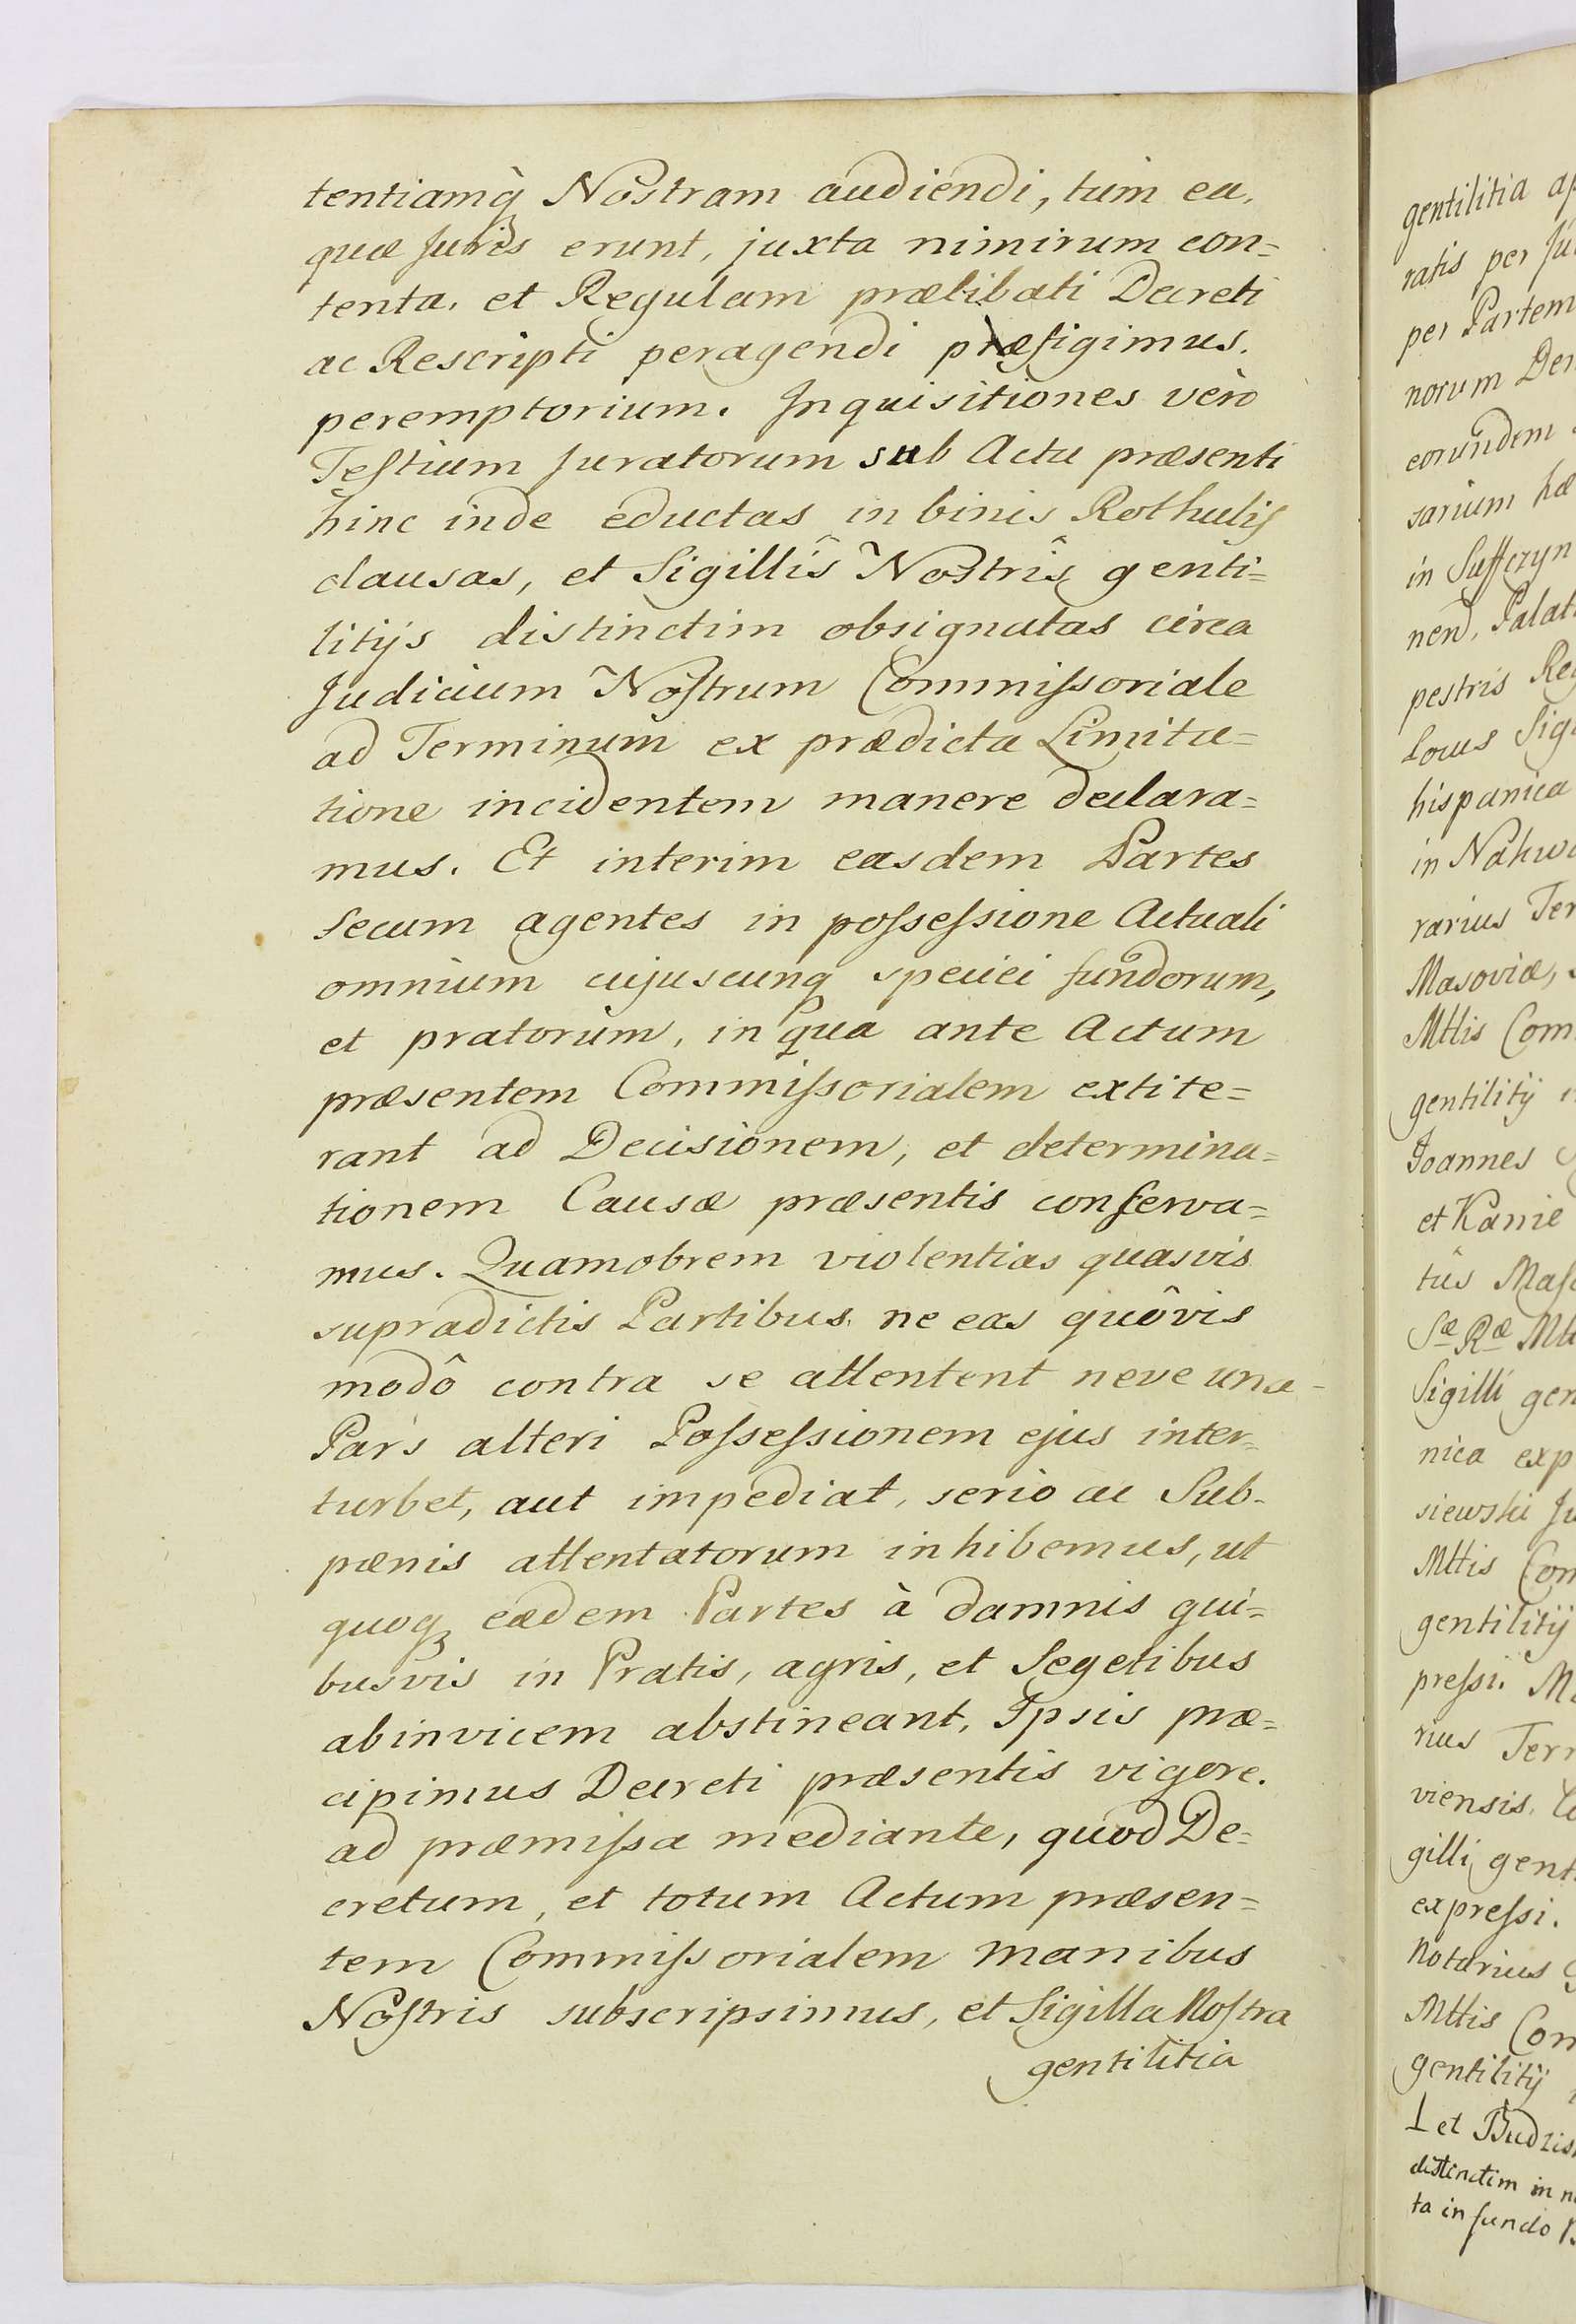 tentiamq̀ Nostram audiendi, tùm ea,
quæ Juris erunt, juxta nimirum con=
tenta, et Regulam prælibati Decreti
ac Rescripti peragendi præfigimus.
peremptorium. Inquisitiones verò
Teſtium Juratorum sub Actu præsenti
hinc inde eductas in binis Rothuliſ
clausas, et Sigillîs Nostrîs genti=
litijs distinctim obsignatas circa
Judicium Noſtrum Commiſsoriale
ad Terminum ex prædicta Limita=
tione incidentem manere declara=
mus. Et interim easdem Partes
secum agentes in poſseſsione Actuali
omnium cujuscunq speciei fundorum,
et pratorum, in qua ante Actum
præsentem Commiſsorialem extite=
rant ad Decisionem, et determina=
tionem Causæ præsentis conſerva=
mus. Quamobrem violentias quasvis
supradictis Partibus, ne eas quôvis
modô contra se attentent neve una
Pars alteri Poſseſsionem ejus inter=
turbet, aut impediat, serio ac Sub-
pænis attentatorum inhibemus, ut
quoq eædem Partes à damnis qui=
busvis in Pratis, agris, et Segetibus
abinvicem abstineant, Ipsis præ=
cipimus Decreti præsentis vigore.
ad præmiſsa mediante, quod De=
cretum, et totum Actum præsen=
tem Commiſsorialem manibus
Noſtris subscripsimus, et Sigilla Noſtra
gentilitia
gentilitia
ratis per
per Partem
norum
eorundem
sarium
in
nen,
pestris
Locus
hispanica
in
rarius
Masoviæ,
Mttis
gentilitij
Joannes
et Kanie
tûs
Sæ Ræ
Sigilli
nica
siewski
Mttis
gentilitij
preſsi.
rius
viensis,
gilli
expreſsi.
Notarius
Mttis
gentilitij
et
distinctim in
ta in fundo